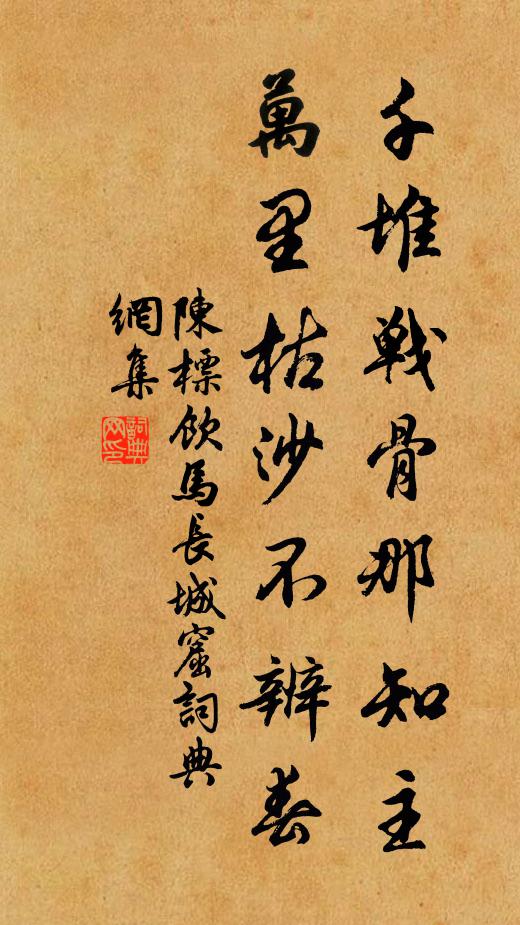 千堆戰骨那知主
萬里枯沙不辨春
陳標飲馬長城窟詞典
網集
詞典
网印